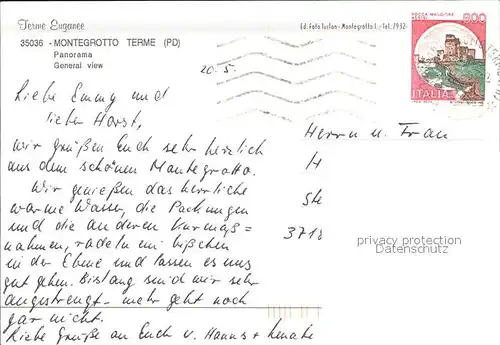 Terme Euganee
35036 - MONTEGROTTO TERME (PD)
Panorama
General view
Ed. Foto Turlon - Montegrotto T. - Tel. 7932
800
ITALIA
20.5.
Liebe Emmy und
lieber Horst,
wir grüßen Euch sehr herzlich
aus dem schönen Montegrotto.
Wir genießen das herrliche
warme Wasser, die Packungen
und die anderen Kurmaß=
nahmen, radeln ein bißchen
in der Ebene und lassen es uns
gut gehen. Bislang sind wir sehr
angestrengt - mehr geht noch
gar nicht.
Liebe Grüße an Euch v. Hanns + Renate
Herrn u. Frau
H
Ste
3718
passionforpostcards
PROTECTED